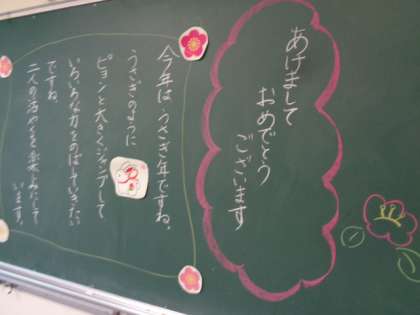 あけまして
おめでとう
ございます
今年は、うさぎ年ですね。
うさぎのように
ピョンと大きくジャンプして
いろいろな力をのばしていきたい
ですね。
二人の活やくを楽しみにして
います。